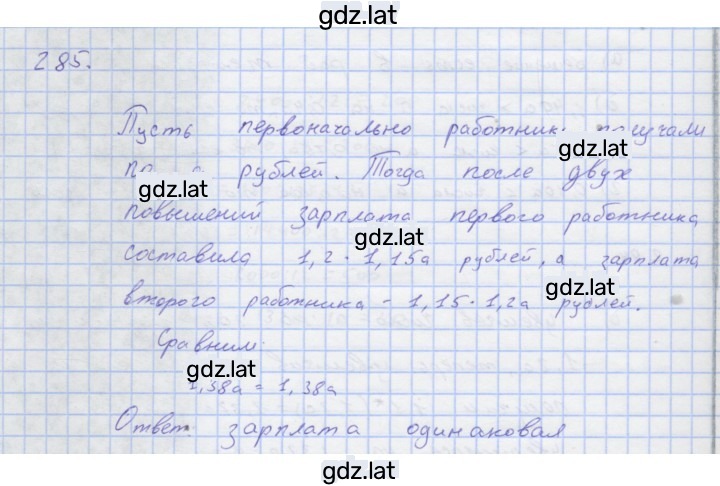 gdz.lat
285.
Пусть первоначально работник получали
gdz.lat
по рублей. Тогда после двух
gdz.lat
повышений зарплата первого работника
gdz.lat
составила 1,2 · 1,15a рублей, а зарплата
gdz.lat
второго работника - 1,15 · 1,2a рублей.
Сравним
gdz.lat
1,38a = 1,38a
Ответ: зарплата одинаковая
gdz.lat